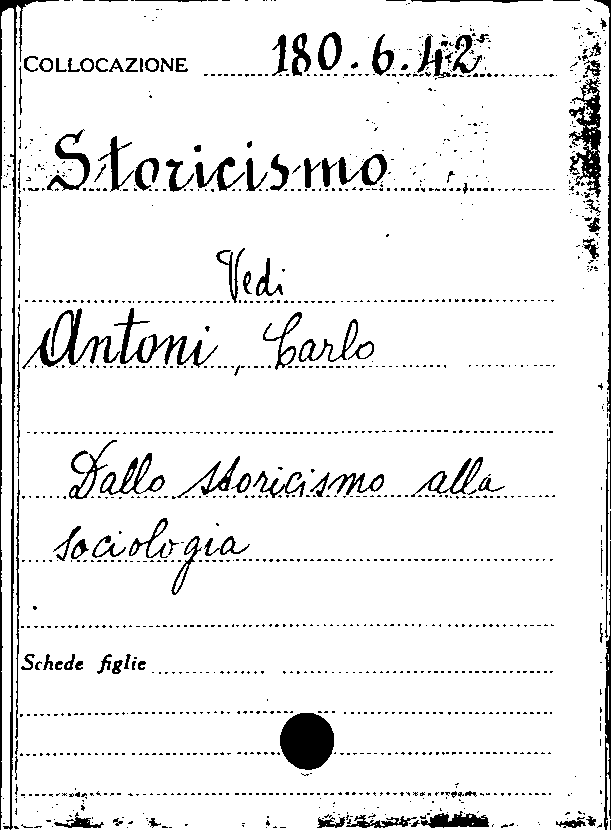 COLLOCAZIONE 180.6.42
Storicismo
Vedi
Antoni, Carlo
Dallo storicismo alla
sociologia
Schede figlie